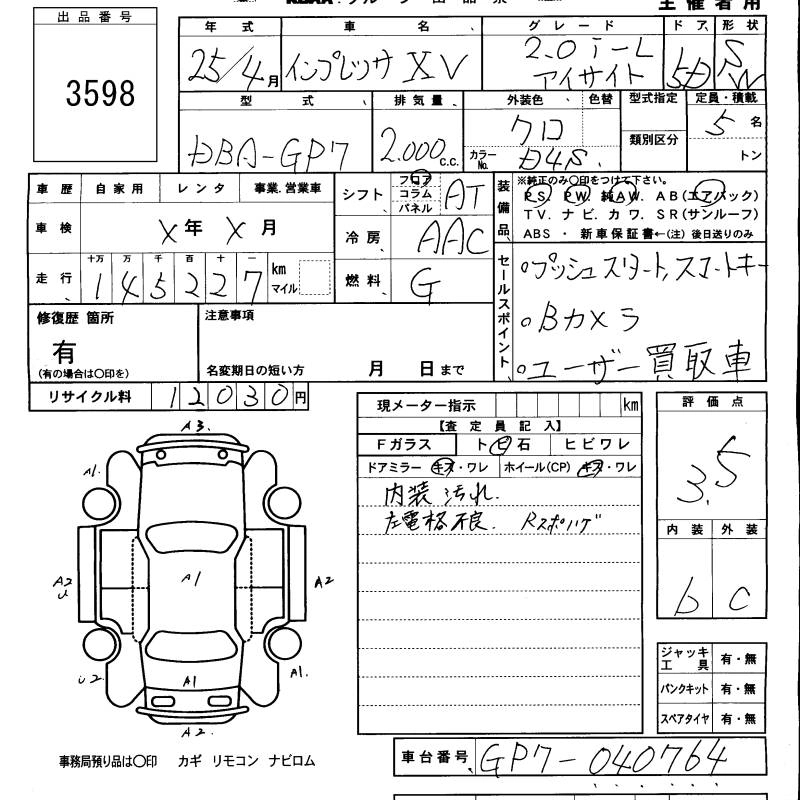 主催者用
出品番号
3598
年式 車名 グレード ドア 形状
25/4月 インプレッサ XV 2.0 i-L アイサイト 5D S/W
型式 排気量 外装色 色替 型式指定 定員・積載
DBA-GP7 2.000 c.c. クロ 類別区分 5名
カラーNo. D4S. トン
車歴 自家用 レンタ 事業.営業車
シフト フロア コラム パネル AT
車検 X年X月
冷房 AAC
走行 十万 万 千 百 十 一
145227 km マイル
燃料 G
装備品
※純正のみ○印をつけて下さい。
PS. PW. 純AW. AB(エアバック)
TV. ナビ. カワ. SR(サンルーフ)
ABS ・ 新車保証書←(注) 後日送りのみ
セールスポイント
。プッシュスタート,スマートキー
。Bカメラ
。ユーザー買取車
修復歴 箇所
有
(有の場合は○印を)
注意事項
名変期日の短い方 月 日まで
リサイクル料 12030円
現メーター指示 km
【査定員記入】
Fガラス トビ石 ヒビワレ
ドアミラー キズ・ワレ ホイール(CP) キズ・ワレ
内装 汚れ.
左電格不良. Rスポハゲ
評価点
3.5
内装 外装
b c
A3.
A1.
A2
U
A1
A2
U2
A1
A1.
A2.
ジャッキ工具 有・無
パンクキット 有・無
スペアタイヤ 有・無
事務局預り品は○印 カギ リモコン ナビロム
車台番号 GP7-040764